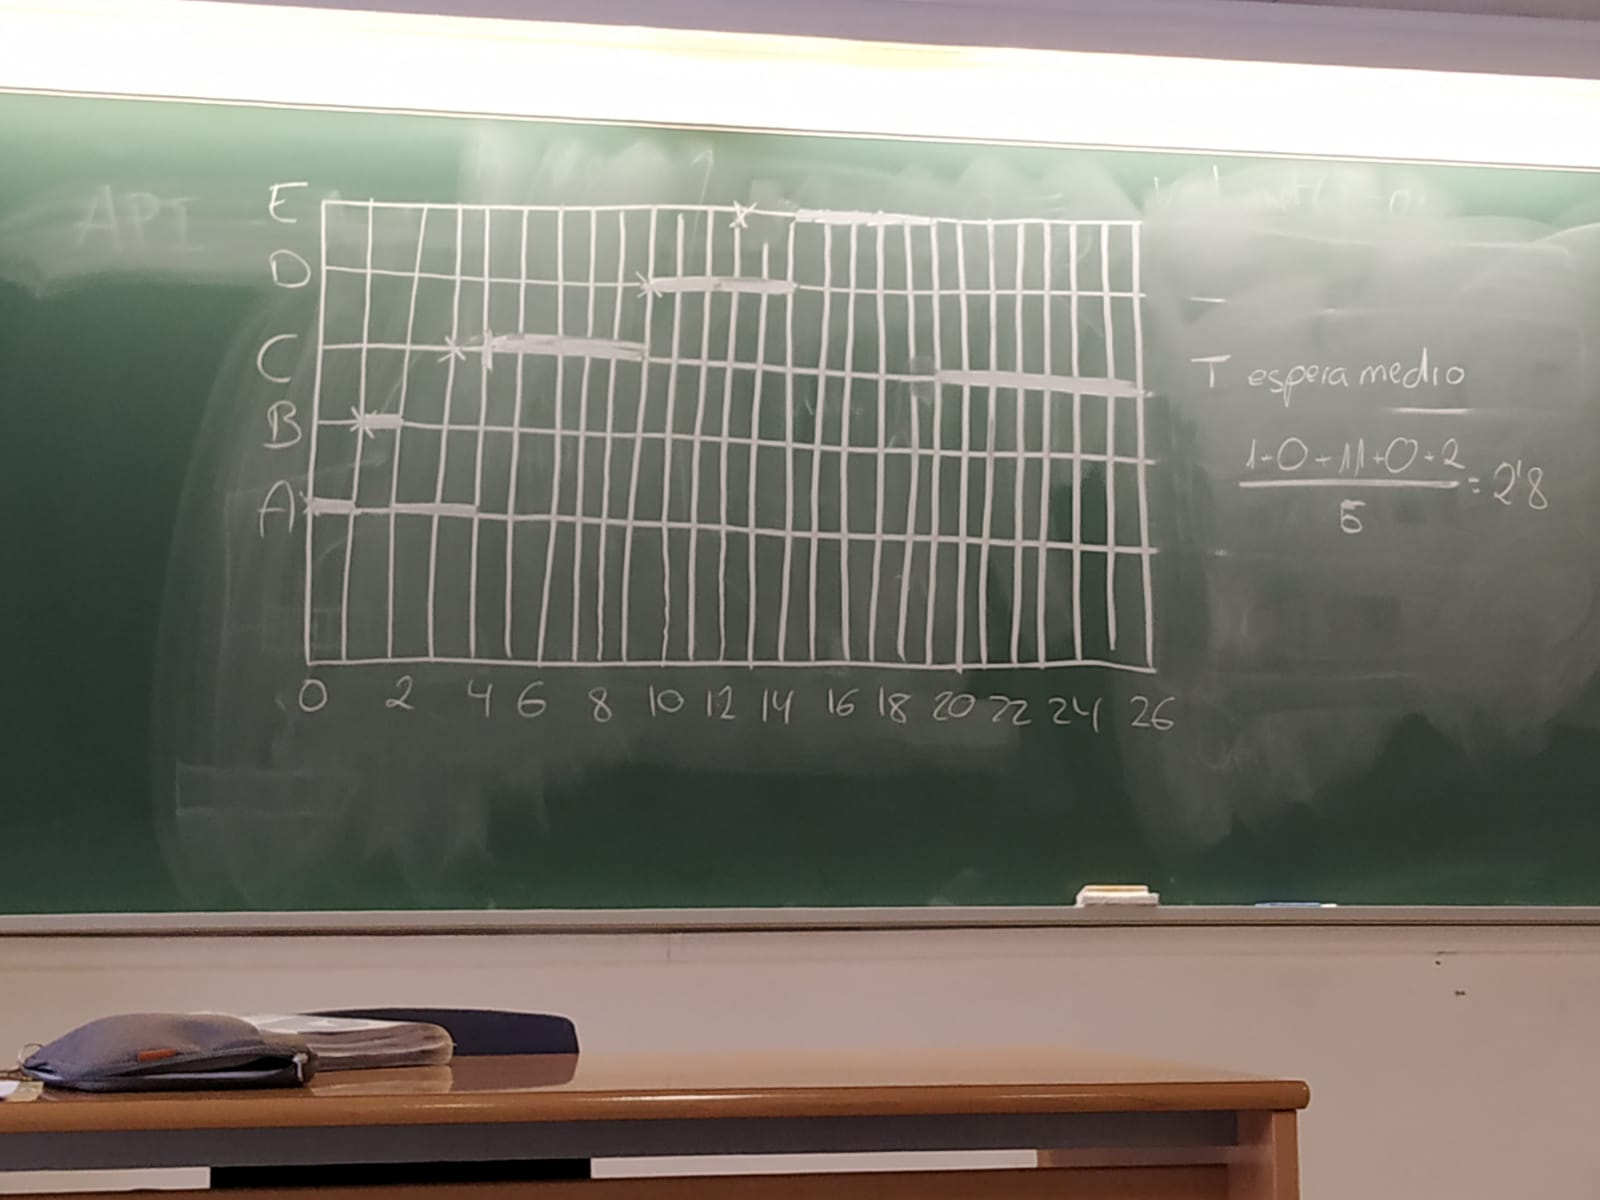 API
E
D
C
B
A
0 2 4 6 8 10 12 14 16 18 20 22 24 26
T espera medio
1+0+11+0+2
5
= 2'8